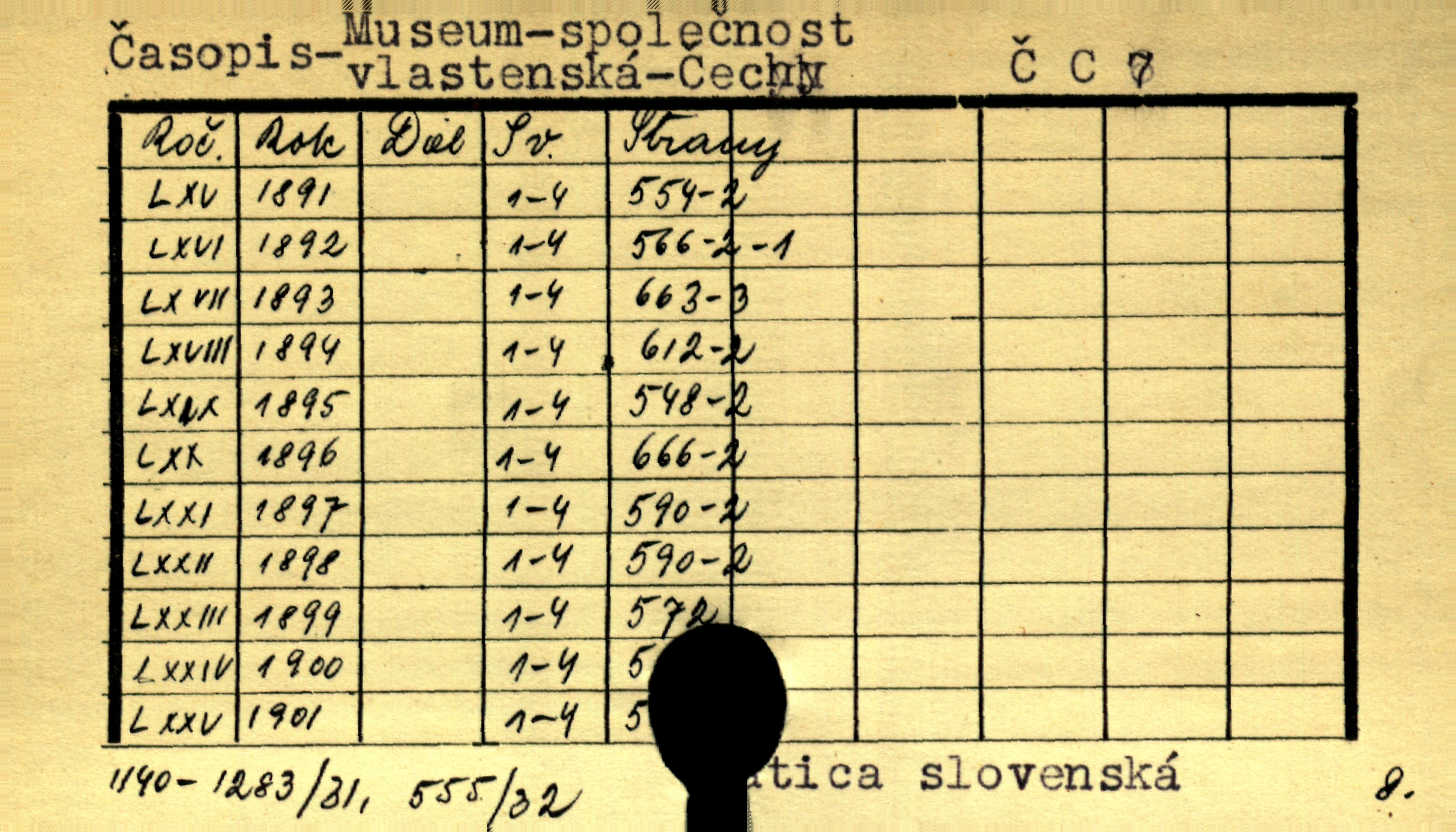 Časopis-Museum-společnost
vlastenská-Čechy
Č C 7
Roč. Rok Diel Sv. Strany
LXV 1891 1-4 554-2
LXVI 1892 1-4 566-2-1
LXVII 1893 1-4 663-3
LXVIII 1894 1-4 612-2
LXIX 1895 1-4 548-2
LXX 1896 1-4 666-2
LXXI 1897 1-4 590-2
LXXII 1898 1-4 590-2
LXXIII 1899 1-4 572
LXXIV 1900 1-4 5
LXXV 1901 1-4 5
1140-1283/31, 555/32
atica slovenská
8.